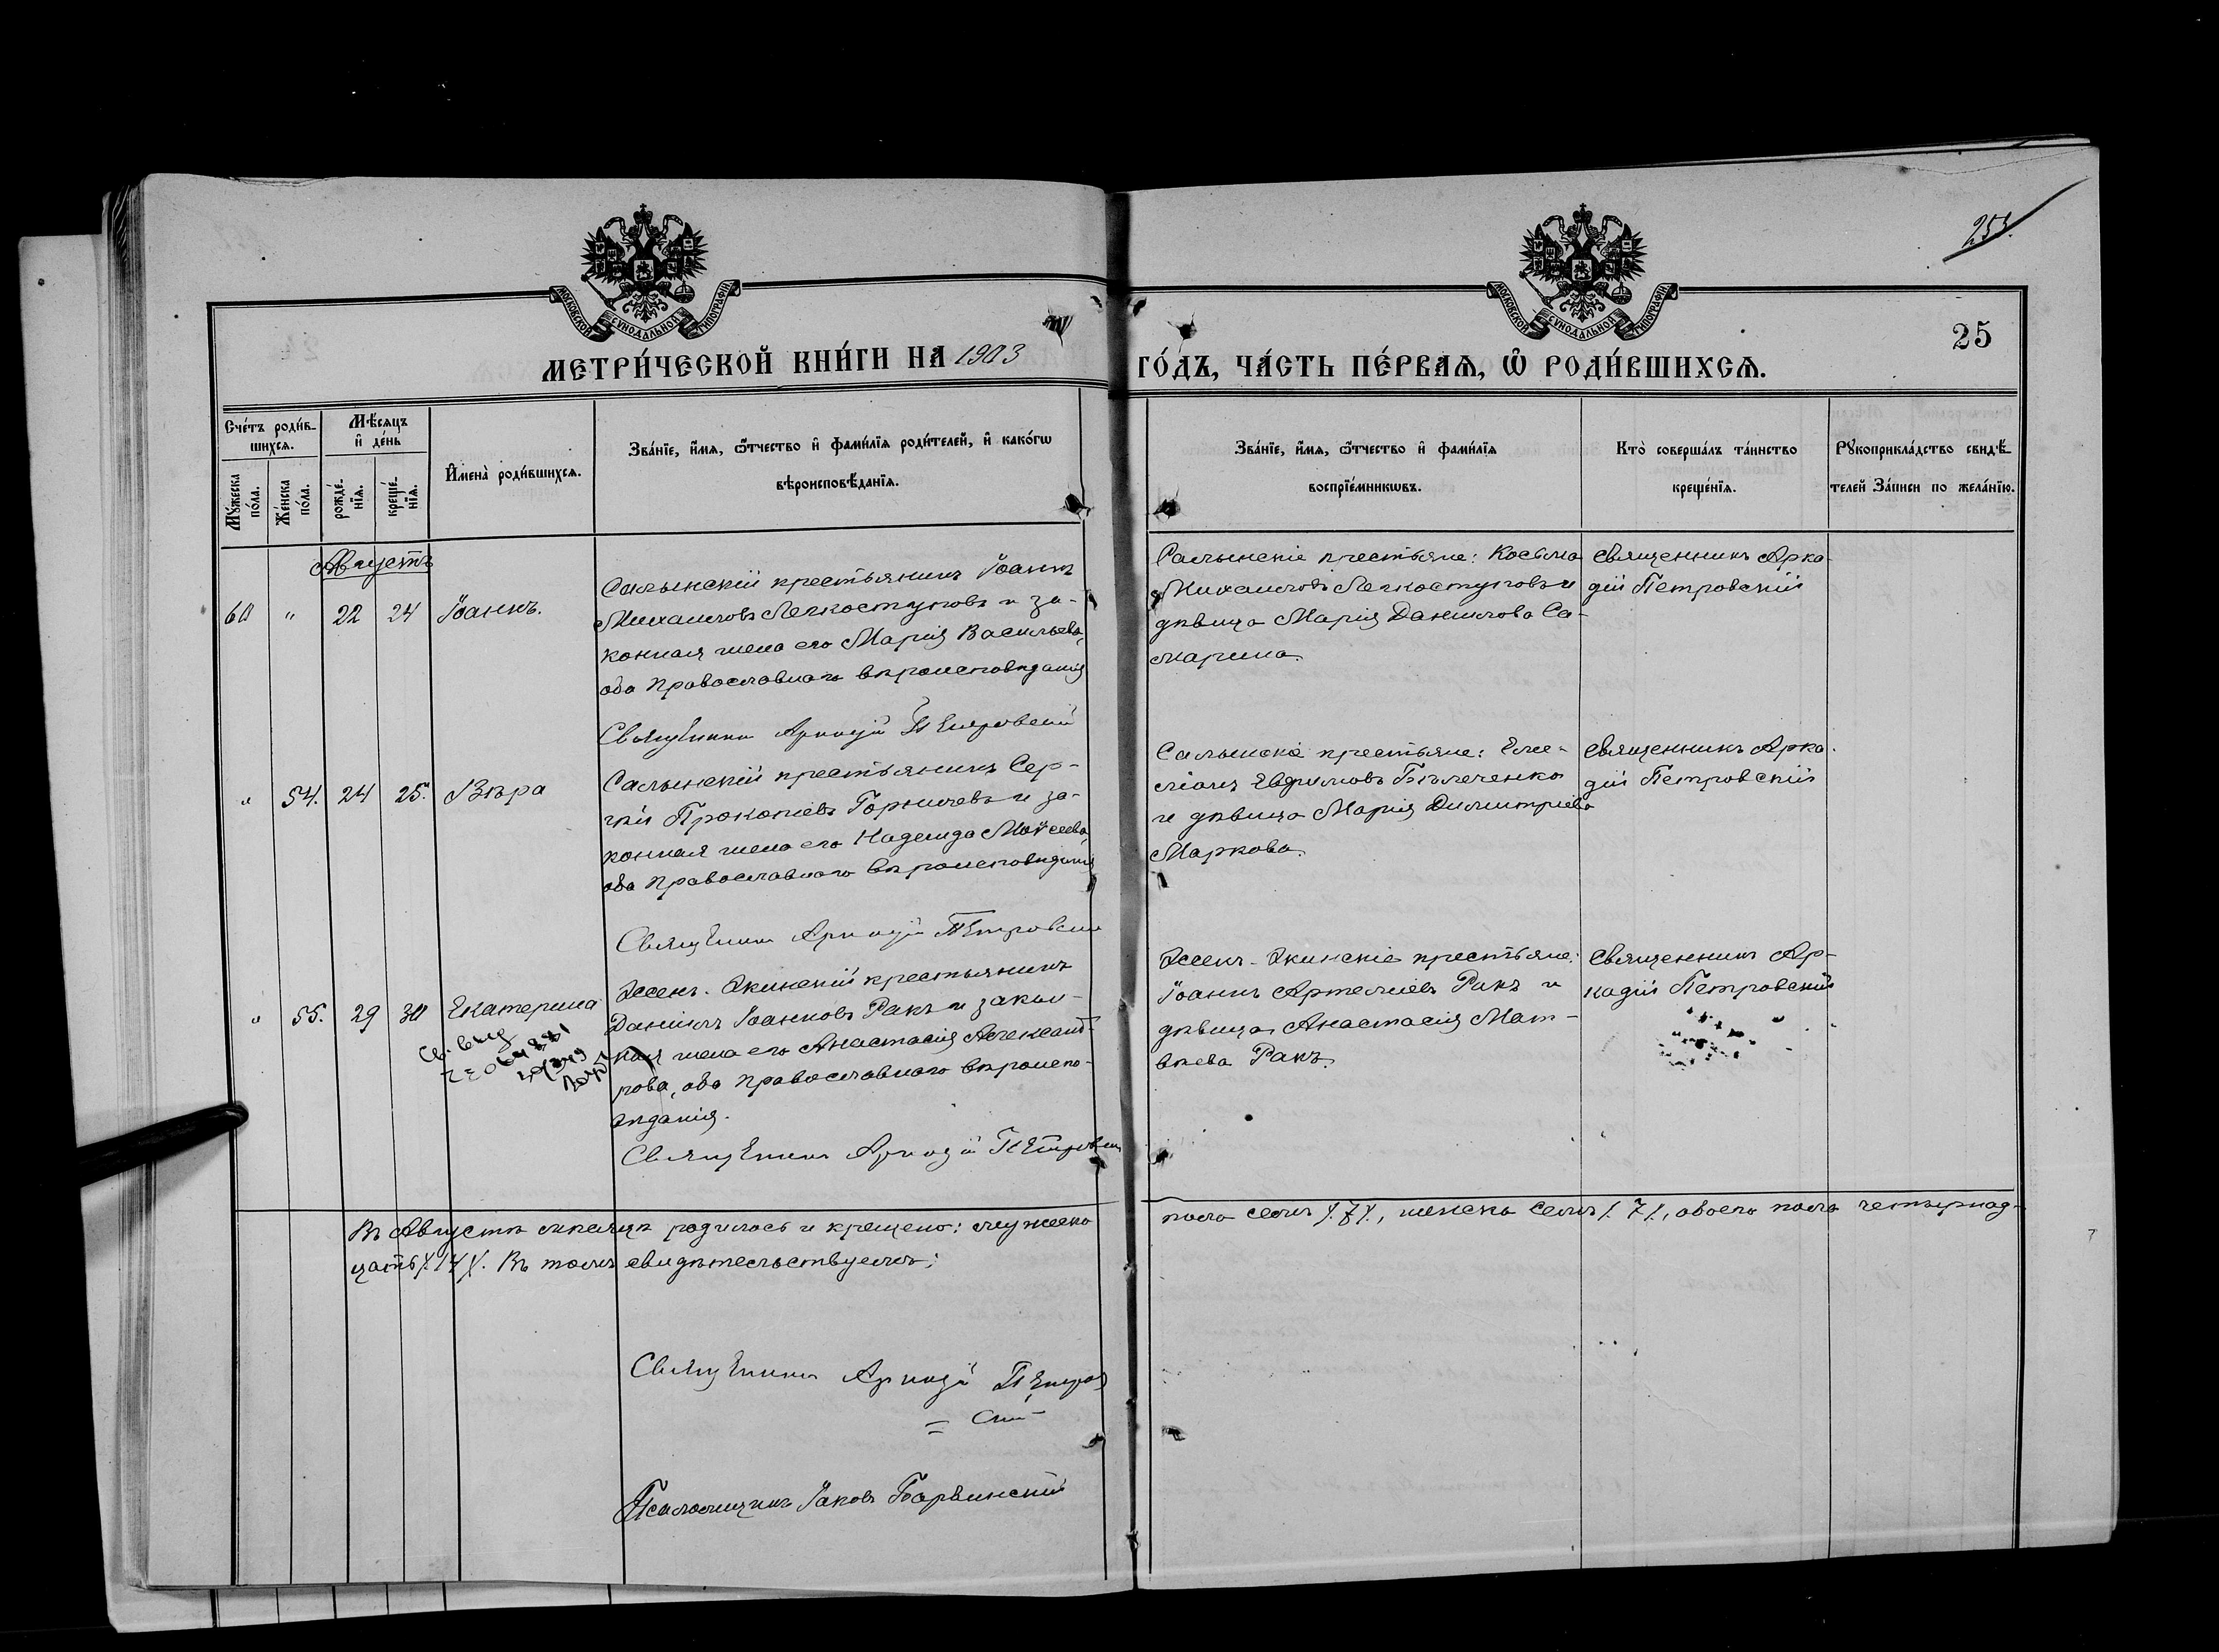 253.
МОСКОВСКОЙ СѴНОДАЛЬНОЙ ТИПОГРАФІИ
МОСКОВСКОЙ СѴНОДАЛЬНОЙ ТИПОГРАФІИ
25
МЕТРИ́ЧЕСКОЙ КНИ́ГИ НА 1903 ГО́ДЪ, ЧА́СТЬ ПЕ́РВАѦ, Ѡ҆ РОДИ́ВШИХСѦ.
Сче́тъ роди́в-
шихсѧ.
Мꙋ́жеска
по́ла.
Же́нска
по́ла.
Мѣ́сѧцъ
и҆ де́нь
рожде́-
нїѧ.
креще́-
нїѧ.
И҆мена̀ роди́вшихсѧ.
Зва́нїе, и҆́мѧ, ѻ҆́тчество и҆ фами́лїѧ роди́телей, и҆ како́гѡ
вѣроисповѣ́данїѧ.
Зва́нїе, и҆́мѧ, ѻ҆́тчество и҆ фами́лїѧ
воспрїе́мникѡвъ.
Кто̀ соверша́лъ та́инство
креще́нїѧ.
Рꙋкоприкла́дство свидѣ́-
телей за́писи по жела́нїю.
Августъ
60 " 22 24 Іоаннъ.
Салынскій крестьянинъ Іоаннъ
Михаиловъ Легкоступовъ и за-
конная жена его Марія Васильева,
оба Православнаго вѣроисповѣданія
Священникъ Аркадій Петровскій
Салынскіе крестьяне: Косьма
Михаиловъ Легкоступовъ и
дѣвица Марія Данилова Са-
марина.
Священникъ Арка-
дій Петровскій
" 54. 24 25. Вѣра
Салынскій крестьянинъ Сер-
гѣй Прокопіевъ Горчилевъ и за-
конная жена его Надежда Моѵсеева,
оба Православнаго вѣроисповѣданія
Священникъ Аркадій Петровскій
Салынскіе крестьяне: Еме-
ліанъ Евфимовъ Бѣлеченко
и дѣвица Марія Димитріева
Маркова.
Священникъ Арка-
дій Петровскій
" 55. 29 30 Екатерина
Джеенъ-Экинскій крестьянинъ
Даніилъ Іоанновъ Ракъ и закон-
ная жена его Анастасія Александ-
рова, оба православнаго вѣроиспо-
вѣданія.
Священникъ Аркадій Петровскій
Іоаннъ Артеміевъ Ракъ и
дѣвица Анастасія Мат-
вѣева Ракъ.
Священникъ Ар-
кадій Петровскій
Въ Августѣ мѣсяцѣ родилось и крещено: мужеска пола семь /.7/., женска семь /.7/., обоего пола четырнад-
цать /.14/. Въ томъ свидѣтельствуемъ:
Священникъ Аркадій Петров
= скій
Псаломщикъ Іаковъ Барвинскій